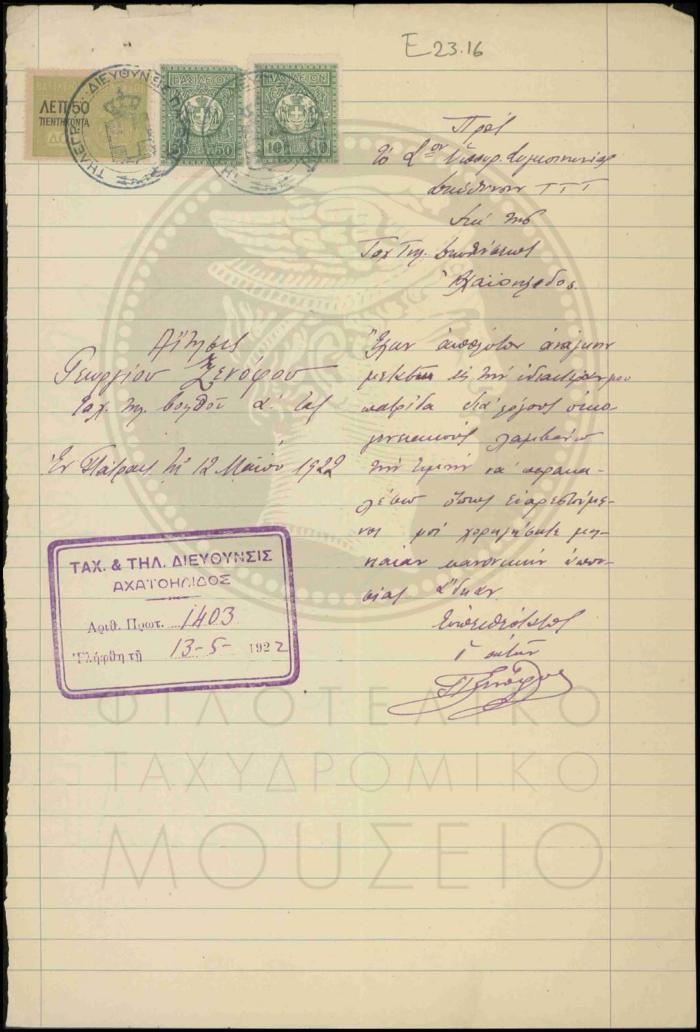 E 23.16
ΛΕΠ. 50
ΠΕΝΤΗΚΟΝΤΑ
ΒΑΣΙΛΕΙΟΝ
50 50
ΒΑΣΙΛΕΙΟΝ
10 10
Πρὸς
τὸ Σον Ὑπουρ. Συγκοινωνίας
Διεύθυνσιν Τ Τ Τ
Διὰ τῆς
Ταχ Τηλ. Διευθύνσεως
Ἀχαϊοήλιδος
Αἴτησις
Γεωργίου Ξενόφου
Ταχ. τηλ. βοηθοῦ α. τάξ
Ἐν Πάτραις τῇ 12 Μαΐου 1922
Ἔχων ἀπόλυτον ἀνάγκην
εἰς τὴν ἰδιαιτέραν μου
πατρίδα διὰ λόγους οἰκο-
γενειακοὺς λαμβάνω
τὴν τιμὴν νὰ παρακα-
λέσω ὅπως εὐαρεστούμε-
νοι μοὶ χορηγήσητε μη-
νιαίαν κανονικὴν ἀπου-
σίας ἄδειαν.
Εὐπειθέστατος
ὁ αἰτῶν
ΤΑΧ. & ΤΗΛ. ΔΙΕΥΘΥΝΣΙΣ
ΑΧΑΪΟΗΛΙΔΟΣ
Ἀριθ. Πρωτ. 1403
Ἐλήφθη τῇ 13-5-1922
ΦΙΛΟΤΕΛΙΚΟ
ΤΑΧΥΔΡΟΜΙΚΟ
ΜΟΥΣΕΙΟ